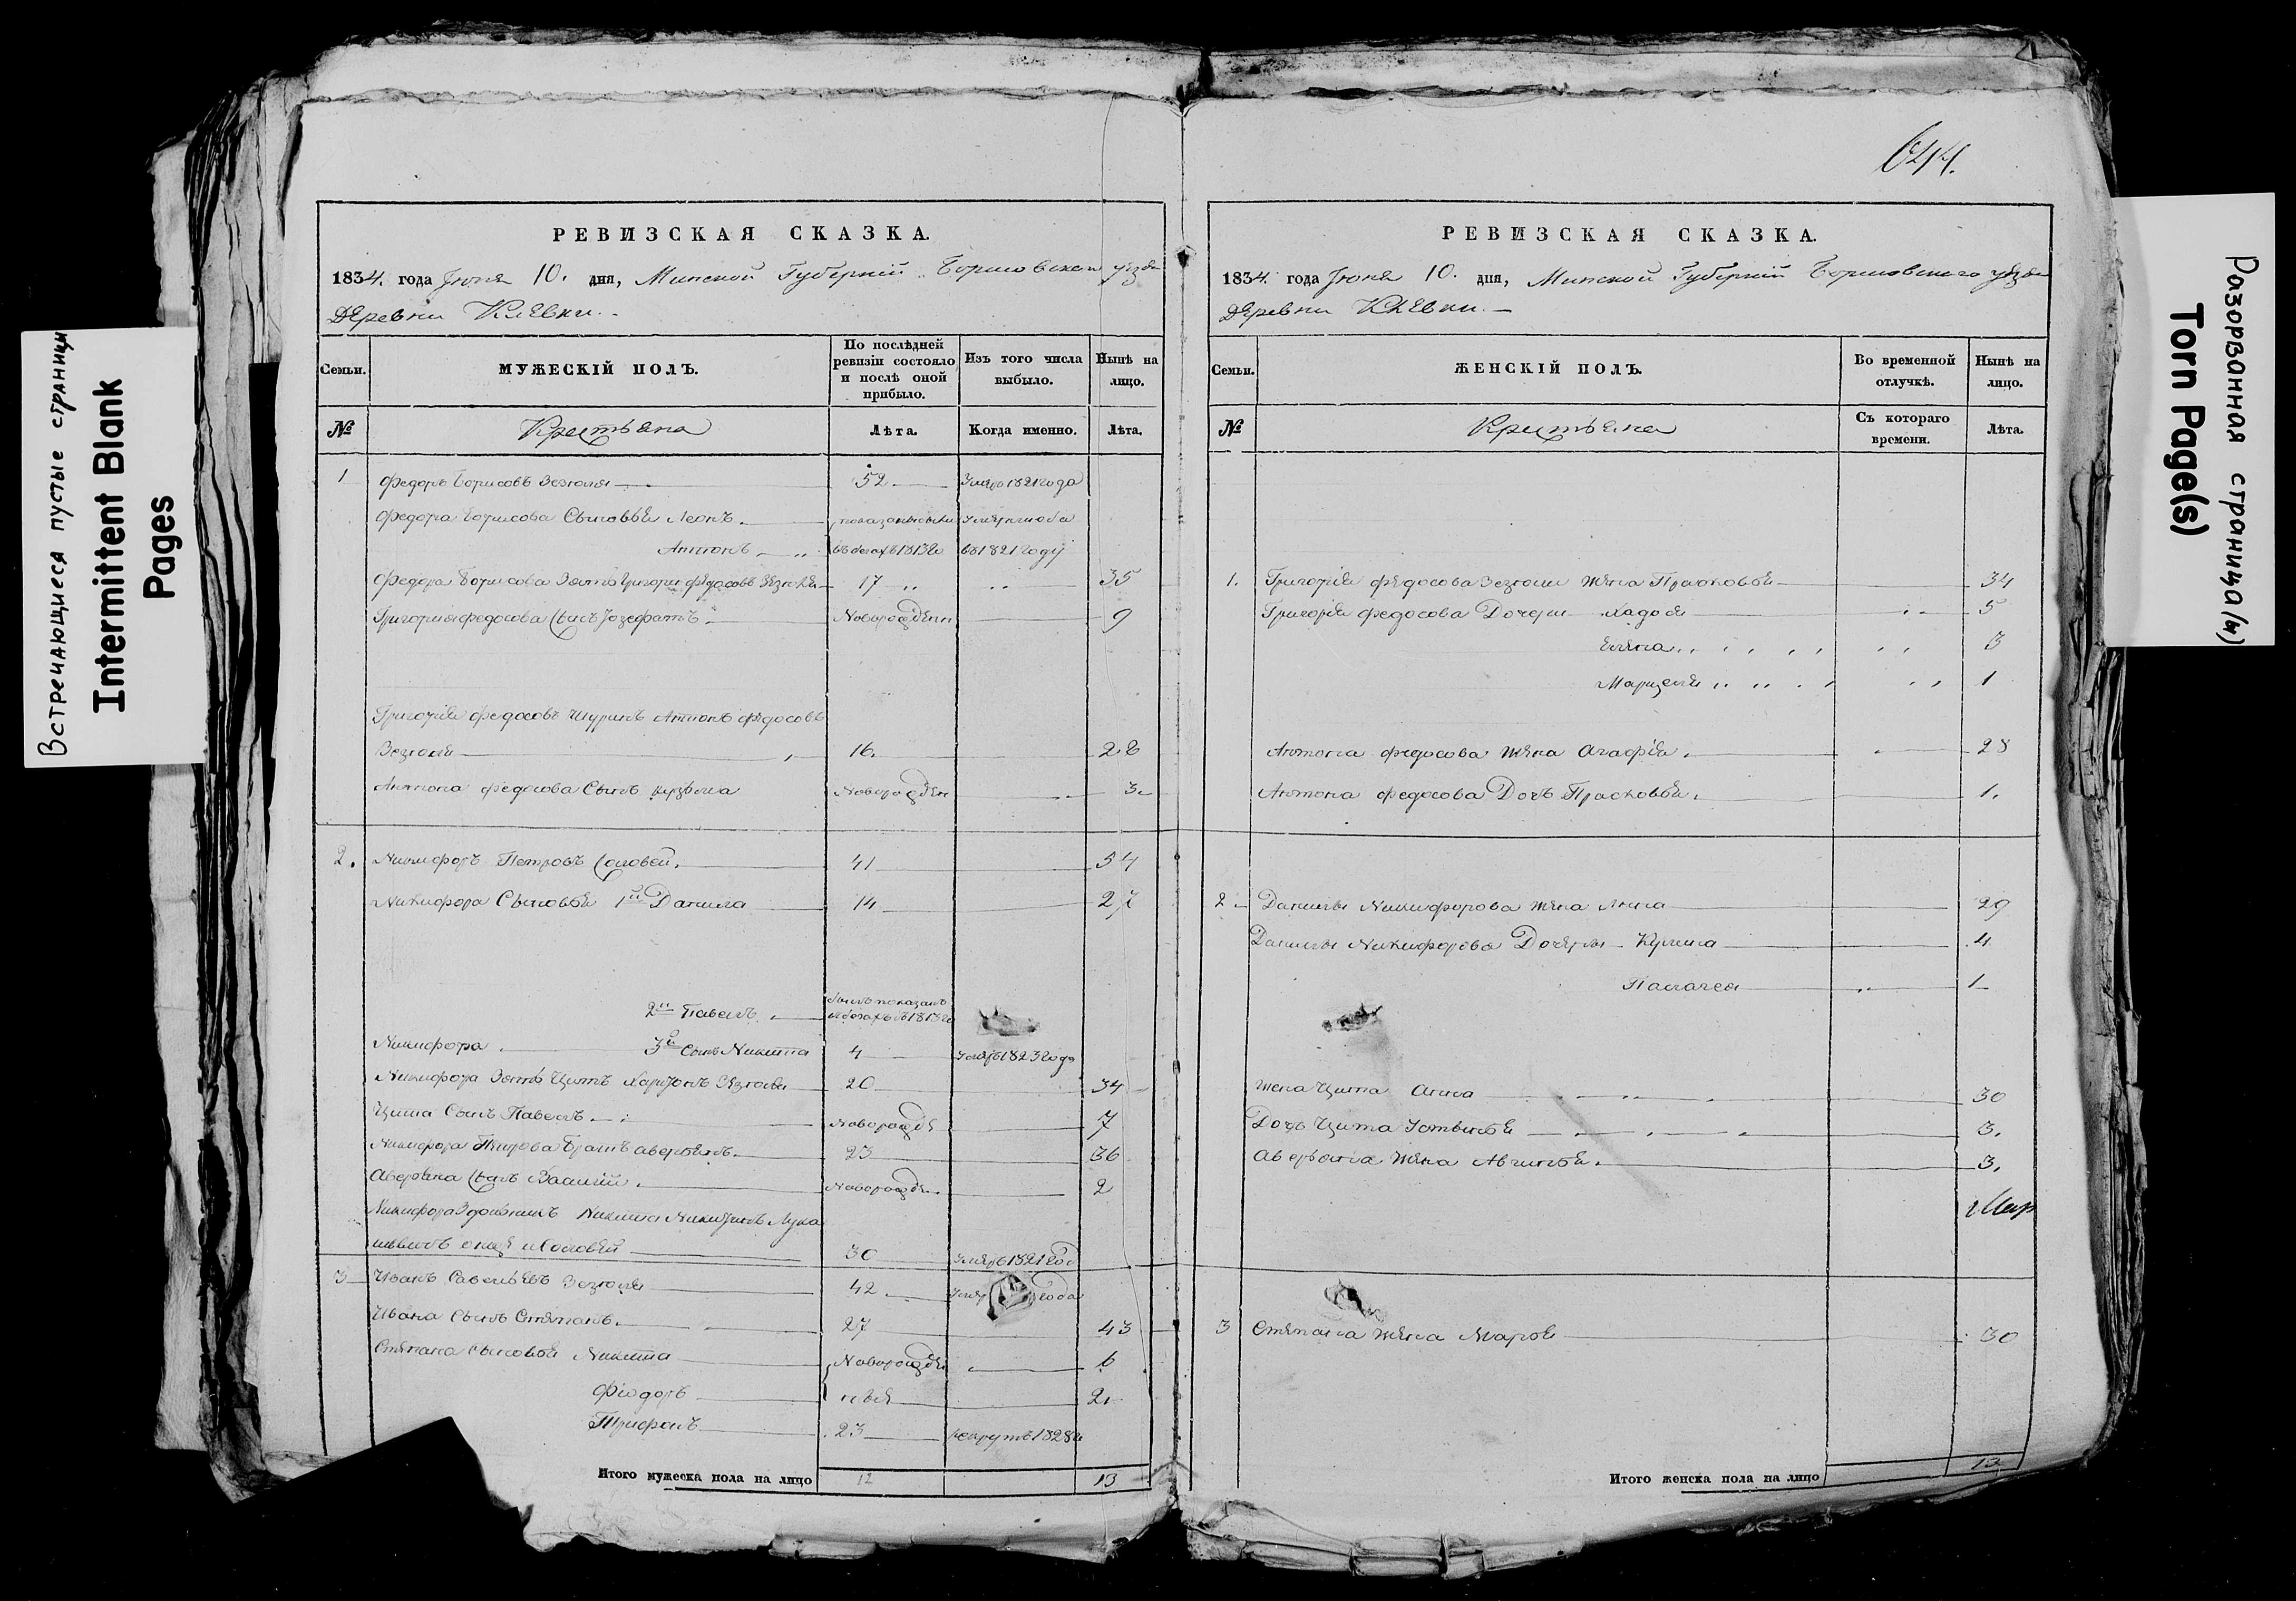 Встречающиеся пустые страницы
Intermittent Blank
Pages
644.
РЕВИЗСКАЯ СКАЗКА.
1834. года Іюня 10. дня, Минской Губерніи Борисовскаго уѣзда
Деревни Клевки.
Семьи.
МУЖЕСКІЙ ПОЛЪ.
По послѣдней
ревизіи состояло
и послѣ оной
прибыло.
Изъ того числа
выбыло.
Нынѣ на
лицо.
№
Крестьяна
Лѣта.
Когда именно.
Лѣта.
1 Федоръ Борисовъ Зезюля 52 Умеръ 1821 года
Федора Борисова Сыновья Леонъ
Антонъ въ бегахъ 1813 го въ 1821 году
Федора Борисова Зять Григори федосовъ Зезюля 17 35
Григория федосова Сынъ Іозефатъ Новорожденн 9
Григорія федосовъ Шуринъ Антонъ федосовъ
Зезюля 16. 28
Антона федосова Сынъ Кузьма Новорожден 3
2. Никифоръ Петровъ Соловей. 41 54
Никифора Сыновья 1й Данила 14 27
2й Павелъ былъ показанъ
въ бегахъ въ 1813 го
Никифора 3й Сынъ Никита 4 Умеръ 1823 года
Никифора Зять Цитъ Харитонъ Зезюля 20 34
Цита Сынъ Павелъ Новорожде 7
Никифора Петрова Братъ аверьянъ 23 36
Аверьяна Сынъ Василій Новорожде 2
Никифора Никита Никитинъ
Соловей 30 Умеръ 1821 год
3 Иванъ Савельевъ Зезюля 42 Умер года
Ивана Сынъ Степанъ 27 43
Степана сыновья Никита Новорожден 6
Фіодоръ 2
Трифонъ 23 рекрутъ 1828
Итого мужеска пола на лицо 12 13
РЕВИЗСКАЯ СКАЗКА.
1834. года Іюня 10. дня, Минской Губерніи Борисовскаго уѣзда
Деревни Клевки.
Семьи.
ЖЕНСКІЙ ПОЛЪ.
Во временной
отлучкѣ.
Нынѣ на
лицо.
№
Крестьяна
Съ котораго
времени.
Лѣта.
1. Григорія федосова Зезюли жена Прасковья 34
Григорія федосова Дочери 5
Елена 3
Марцеля 1
Антона федосова жена агафія 28
Антона федосова Дочь Прасковья. 1.
2 Данилы Никифорова жена Анна 29
Данилы Никифорова Дочери Кулина 4
Палагея 1
жена Цита Анна 30
Дочь Цита Устинья 3.
аверьяна жена Авгинья. 3.
3 Степана жена Марья 30
Итого женска пола на лицо 12
Разорванная страница(ы)
Torn Page(s)